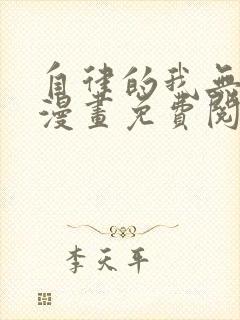 自律的我無
漫畫免費閱
李天平